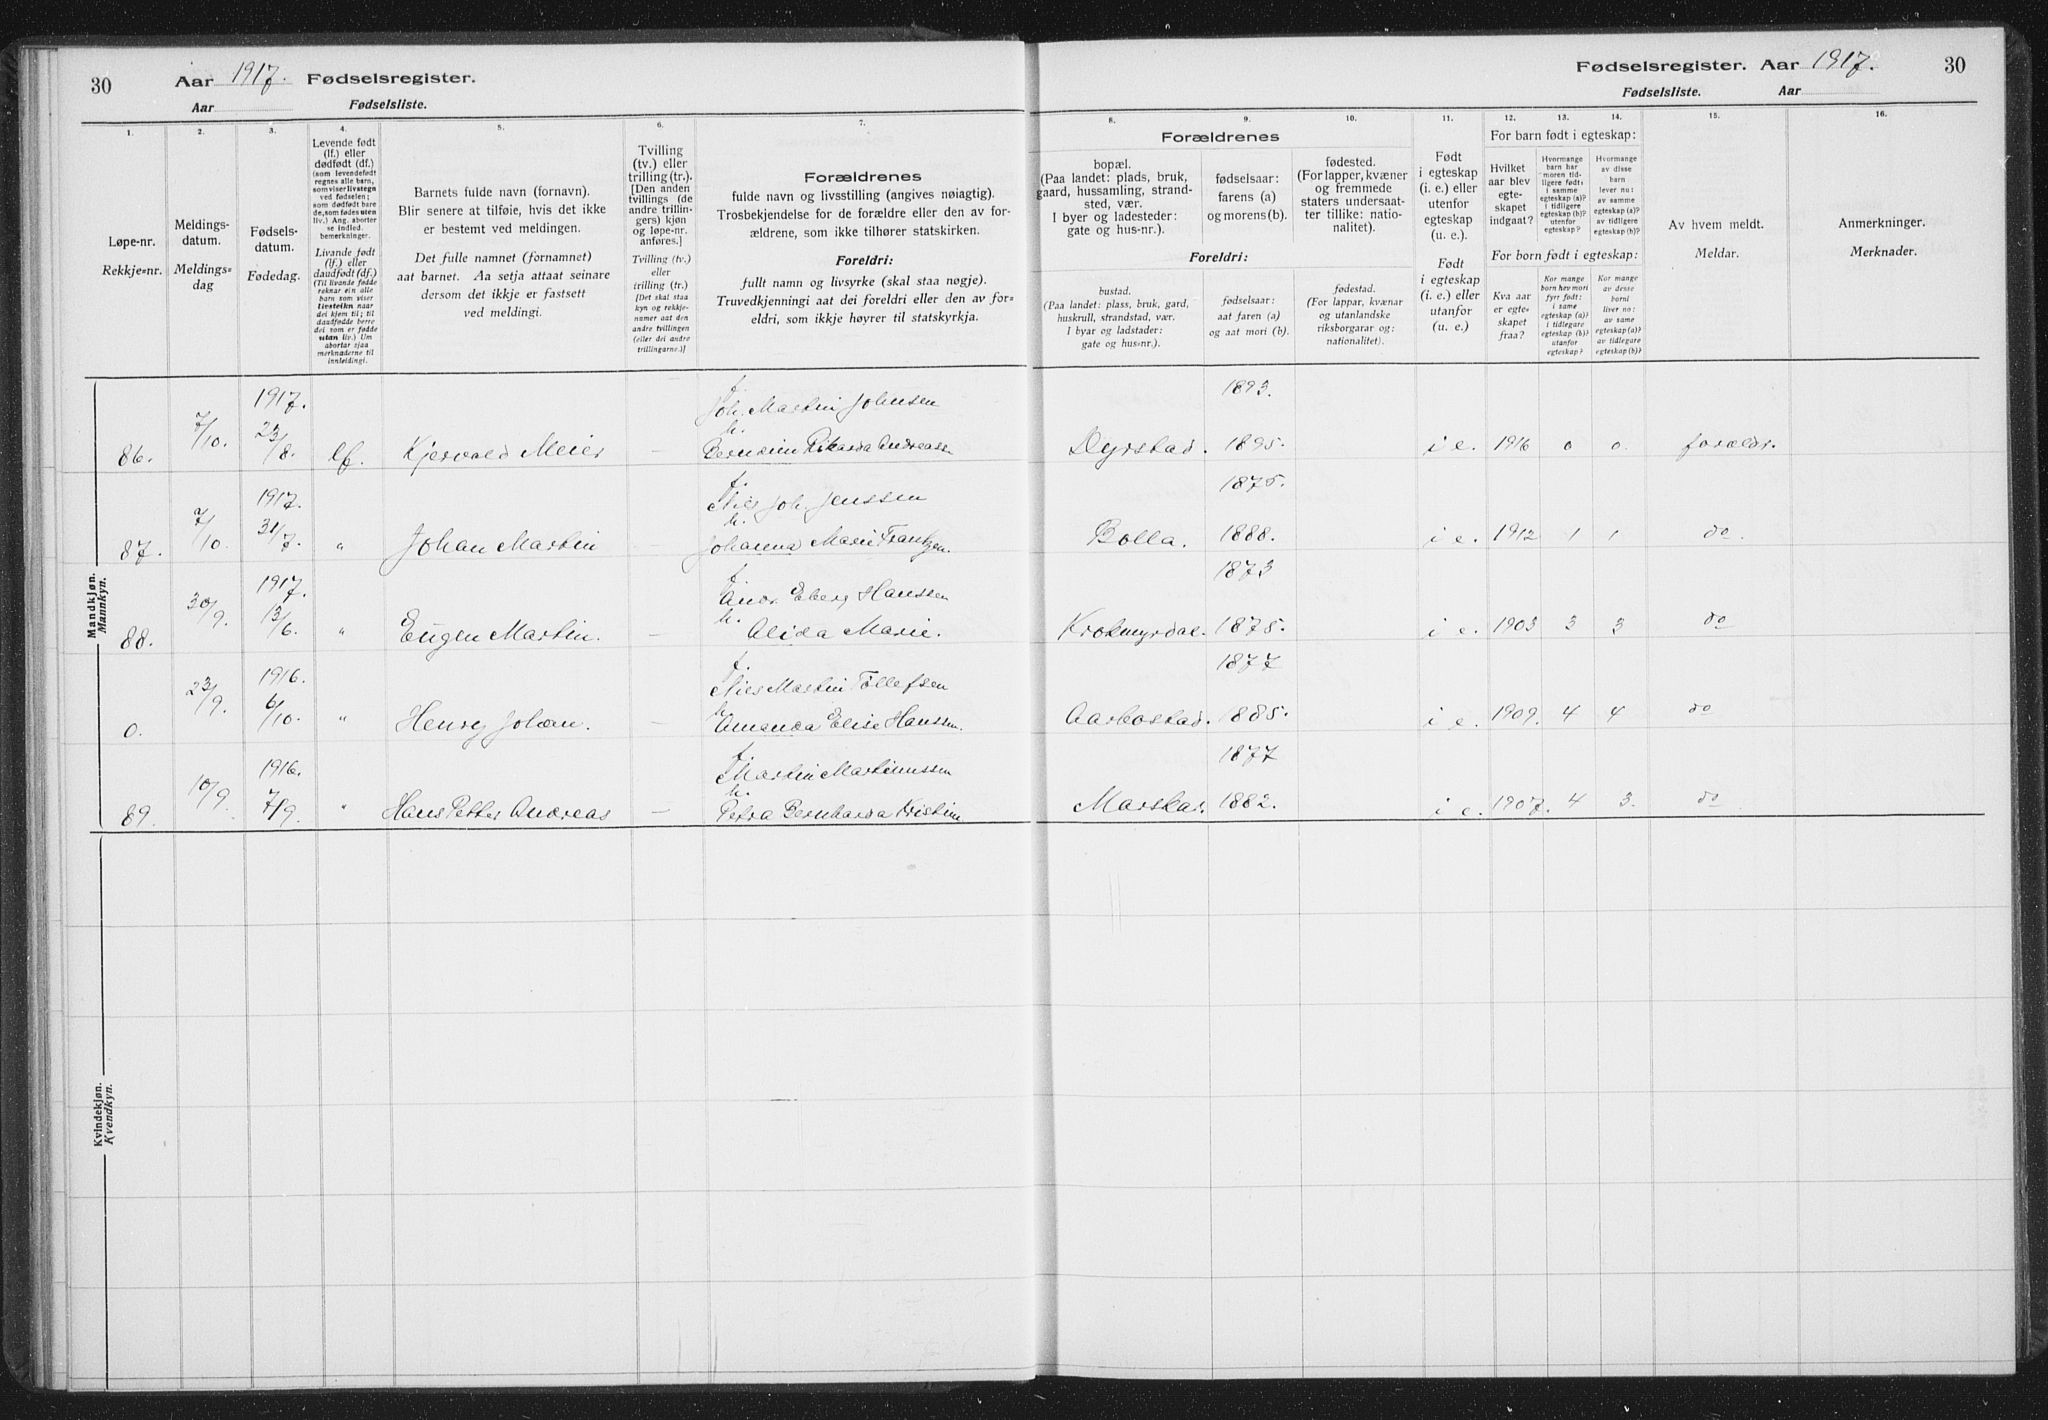 30 Aar 1917. Fødselsregister.
Aar Fødselsliste.
Fødselsregister. Aar 1917. 30
Fødselsliste. Aar
1. 2. 3. 4. 5. 6. 7.
Løpe-nr.
Rekkje-nr.
Meldings-
datum.
Meldings-
dag
Fødsels-
datum.
Fødedag.
Levende født
(lf.) eller
dødfødt (df.)
(som levendefødt
regnes alle barn,
som viser livstegn
ved fødselen;
som dødfødt bare
de, som fødes uten
liv.) Ang. aborter
se indled.
bemerkninger.
Livande født
(lf.) eller
daudfødt (df.)
(Til livande fødde
reknar ein alle
barn som viser
livsteikn naar
dei kjem til; til
daudfødde berre
dei som er fødde
utan liv.) Um
abortar sjaa
merknaderne til
innleidingi.
Barnets fulde navn (fornavn).
Blir senere at tilføie, hvis det ikke
er bestemt ved meldingen.
Det fulle namnet (fornamnet)
aat barnet. Aa setja attaat seinare
dersom det ikkje er fastsett
ved meldingi.
Tvilling
(tv.) eller
trilling (tr.).
[Den anden
tvillings (de
andre trillin-
gers) kjøn
og løpe-nr.
anføres.]
Tvilling (tv.)
eller
trilling (tr.)
[Det skal staa
kyn og rekkje-
numer aat den
andre tvillingen
(eller dei andre
trillingarne.)]
Forældrenes
fulde navn og livsstilling (angives nøiagtig).
Trosbekjendelse for de forældre eller den av for-
ældrene, som ikke tilhører statskirken.
Foreldri:
fullt namn og livsyrke (skal staa nøgje).
Truvedkjenningi aat dei foreldri eller den av for-
eldri, som ikkje høyrer til statskyrkja.
8. 9. 10. 11. 12. 13. 14. 15. 16.
Forældrenes
bopæl.
(Paa landet: plads, bruk,
gaard, hussamling, strand-
sted, vær.
I byer og ladesteder:
gate og hus-nr.).
fødselsaar:
farens (a)
og morens (b).
fødested.
(For lapper, kvæner
og fremmede
staters undersaat-
ter tillike: natio-
nalitet).
Foreldri:
bustad.
(Paa landet: plass, bruk, gard,
huskrull, strandstad, vær.
I byar og ladstader:
gate og hus-nr.).
fødselsaar:
aat faren (a)
og aat mori (b).
fødestad.
(For lappar, kvænar
og utanlandske
riksborgarar og:
nationalitet).
Født
i egteskap
(i. e.) eller
utenfor
egteskap
(u. e.).
Født
i egteskap
(i. e.) eller
utanfor
(u. e.)
For barn født i egteskap:
Hvilket
aar blev
egte-
skapet
indgaat?
Hvormange
barn har
moren tid-
ligere født:
i samme
egteskap (a)?
i tidligere
egteskap (b)?
utenfor
egteskap?
Hvormange
av disse
barn
lever nu:
av samme
egteskap (a)?
av tidligere
egteskap (b)?
For born født i egteskap:
Kva aar
er egte-
skapet
fraa?
Kor mange
born hev mori
fyrr født:
i same
egteskap (a)?
i tidlegare
egteskap (b)?
utanfor
egteskap?
Kor mange
av desse
borni
liver no:
av same
egteskap (a)?
av tidlegare
egteskap (b)?
Av hvem meldt.
Meldar.
Anmerkninger.
Merknader.
Mandkjøn.
Mannkyn.
1917. f. Joh. Martin Johnsen 1893.
86. 7/10. 23/8. lf. Kjervald Meier — h. Rikarda Andreass Dyrstad. 1895. i e. 1916 0 0. foreldr.
1917. f. Nils Joh. Jenssen 1875.
87. 7/10. 31/7. " Johan Martin — h. Johanna Marie Frantzen. Bolla. 1888. i e. 1912 1 1 do.
1917. f. Andr. Eberg Hanssen 1873
88. 30/9. 13/6. " Eugen Martin. — h. Alida Marie. Krokmyrdal. 1875. i e. 1903 3 3 do
1916. f. Nils Martin Tollefsen 1877
0. 23/9. 6/10. " Henry Johan. — h. Amanda Elise Hanssen. Aarbostad. 1885. i e. 1909. 4 4 do
1916. f. Martin Martinussen 1877
89. 10/9. 7/9. " Hans Petter Andreas — h. Petra Bernharda Kristine Marstad. 1882. i e. 1907. 4 3. do
Kvindekjøn.
Kvendkyn.